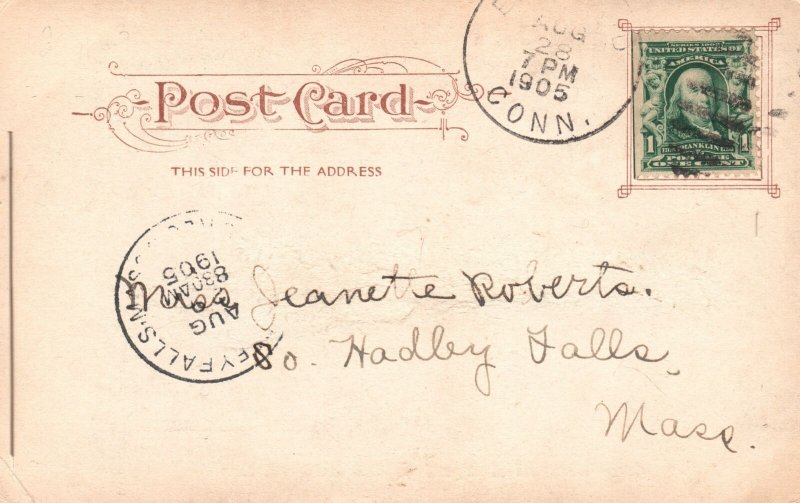 AUG
28
7 PM
1905
CONN.
SERIES 1902
UNITED STATES OF
AMERICA
1 FRANKLIN 1
POSTAGE
ONE CENT
Post Card
THIS SIDE FOR THE ADDRESS
FALLS. MASS.
AUG
830AM
1905
Miss Jeanette Roberts.
So. Hadley Falls,
Mass.